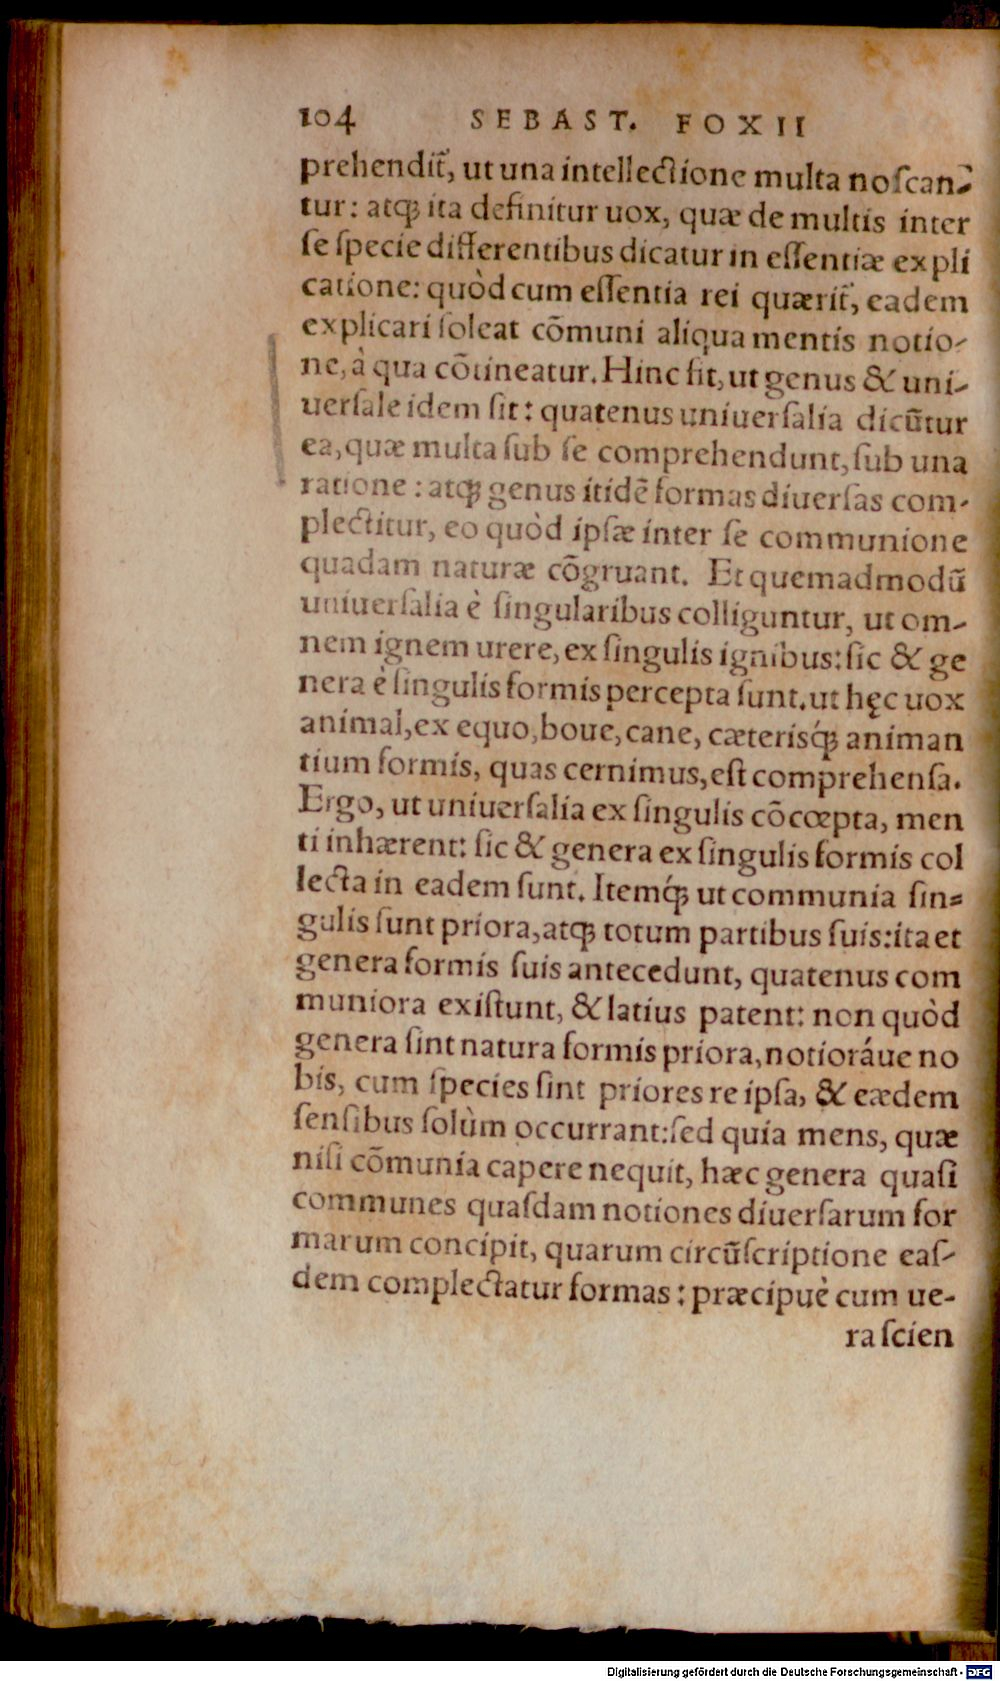 104 SEBAST. FOXII
prehendit̃, ut una intellectione multa noſcan-
tur: atq́ꝫ ita definitur uox, quæ de multis inter
ſe ſpecie differentibus dicatur in eſſentiæ expli
catione: quòd cum eſſentia rei quærit̃, eadem
explicari ſoleat cõmuni aliqua mentis notio-
ne, à qua cõtineatur. Hinc fit, ut genus & uni-
uerſale idem ſit: quatenus uniuerſalia dicũtur
ea, quæ multa ſub ſe comprehendunt, ſub una
ratione: atq́ꝫ genus itidẽ formas diuerſas com-
plectitur, eo quòd ipſæ inter ſe communione
quadam naturæ cõgruant. Et quemadmodũ
uniuerſalia è ſingularibus colliguntur, ut om-
nem ignem urere, ex ſingulis ignibus: ſic & ge
nera è ſingulis formis percepta ſunt. ut hęc uox
animal, ex equo, boue, cane, cæterisq́ꝫ animan
tium formis, quas cernimus, eſt comprehenſa.
Ergo, ut uniuerſalia ex ſingulis cõcœpta, men
ti inhærent: ſic & genera ex ſingulis formis col
lecta in eadem ſunt. Itemq́ꝫ ut communia ſin-
gulis ſunt priora, atq́ꝫ totum partibus ſuis: ita et
genera formis ſuis antecedunt, quatenus com
muniora exiſtunt, & latius patent: non quòd
genera ſint natura formis priora, notioráue no
bis, cum ſpecies ſint priores re ipſa, & eædem
ſenſibus ſolùm occurrant: ſed quia mens, quæ
niſi cõmunia capere nequit, hæc genera quaſi
communes quaſdam notiones diuerſarum for
marum concipit, quarum circũſcriptione eaſ-
dem complectatur formas: præcipuè cum ue-
ra ſcien
Digitalisierung gefördert durch die Deutsche Forschungsgemeinschaft - DFG